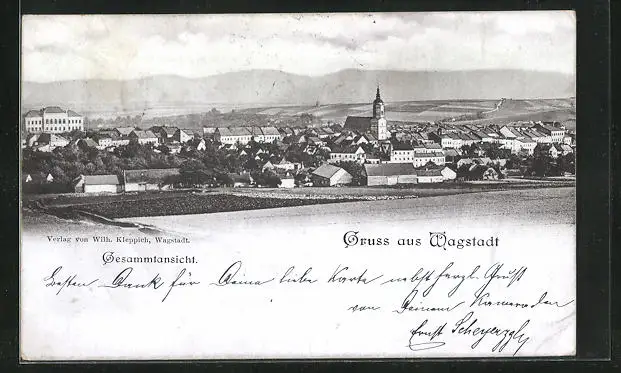 Verlag von Wilh. Kleppich, Wagstadt.
Gruss aus Wagstadt
Gesammtansicht.
Besten Dank für Deine liebe Karte nebst herzl. Gruß
von Deinem Kameraden
Ernst